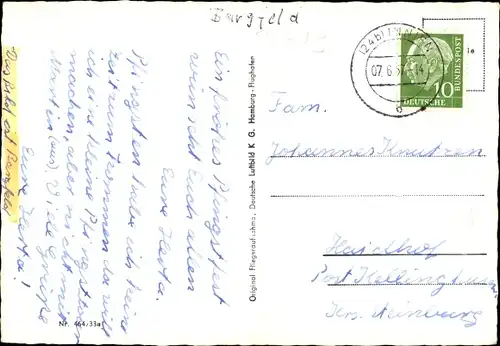 Burgfeld
Ein frohes Pfingstfest
wünscht Euch allen
Eure Herta.
Pfingsten habe ich keine
Zeit zum kommen da will
ich eine kleine Pfingsttour
machen, aber nicht mit
Martin (aus) Viele Grüße
Eure Herta!
Das ist
Nr. 464/33a
Original Fliegeraufnahme, Deutsche Luftbild K. G. Hamburg-Flughafen
(24b)
07.6.57
DEUTSCHE
BUNDESPOST
10
Fam.
Johannes Knutzen
Haidhof
Post Kellinghusen
Krs. Steinburg